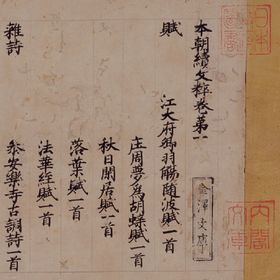 本朝續文粹卷第一
賦
江大府卿羽觴随波賦一首
庄周夢為胡蝶賦一首
秋日閑居賦一首
落葉賦一首
法華經賦一首
雜詩
參安樂寺古調詩一首
金澤文庫
日本
内閣
文庫